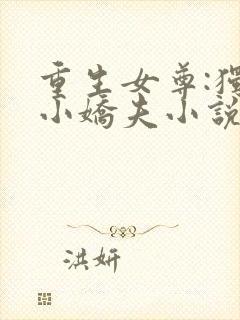 重生女尊:獨
小嬌夫小說
洪妍